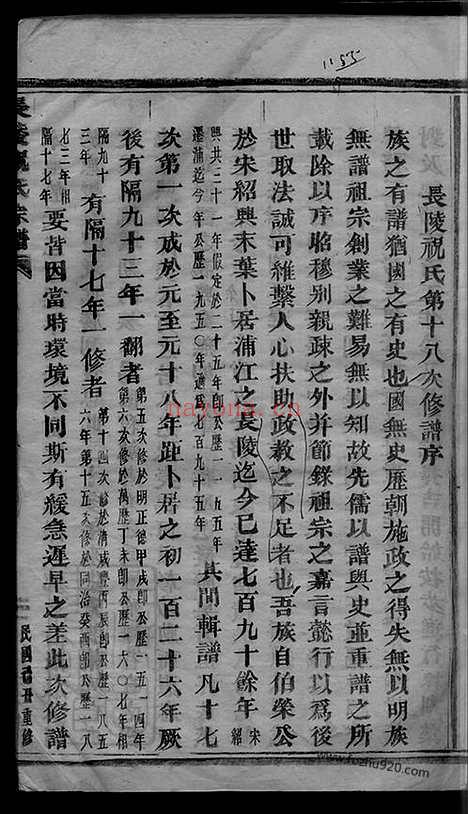 1155
長陵祝氏第十八次修譜序
族之有譜猶國之有史也國無史歷朝施政之得失無以明族
無譜祖宗創業之難易無以知故先儒以譜與史並重譜之所
載除以序昭穆别親疎之外并節錄祖宗之嘉言懿行以爲後
世取法誠可維繫人心扶助政教之不足者也吾族自伯榮公
於宋紹興末葉卜居浦江之長陵迄今已達七百九十餘年宋紹
興共三十一年假定於二十五年卽公歷一一五五年
遷浦迄今年公歷一九五〇年適爲七百九十五年其間輯譜凡十七
次第一次成於元至元十八年距卜居之初一百二十六年厥
後有隔九十三年一翻者第五次修於明正德甲戌卽公歷一五一四年
第六次修於萬歷丁未卽公歷一六〇七年相
隔九十
三年有隔十七年一修者第十四次修於清咸豐丙辰卽公歷一八五
六年第十五次修於同治癸酉卽公歷一八
七三年相
隔十七年要皆因當時環境不同斯有緩急遲早之差此次修譜
長陵祝氏宗譜
民國己丑重修
nayona.cn
www.fozhu920.com